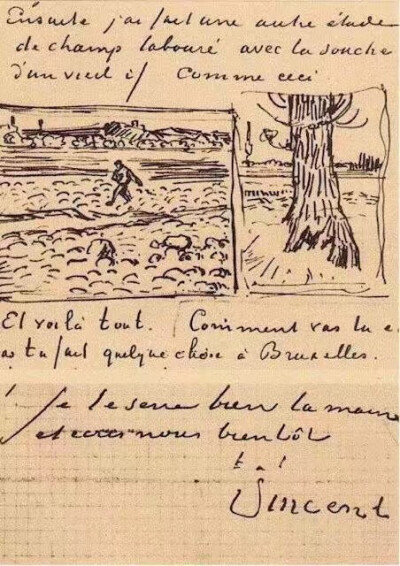 Ensuite j'ai fait une autre étude
de champ labouré avec la souche
d'un vieil if Comme ceci
Et voilà tout. Comment vas tu e
as tu fait quelque chose à Bruxelles.
je te serre bien la main
et écris nous bientôt
Vincent